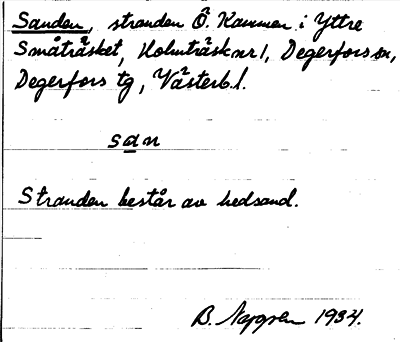 Sanden, stranden Ö. Kammen i Yttre
Småträsket, Holmträsk nr 1, Degerfors sn,
Degerfors tg, Västerb. l.
san
Stranden består av hedsand.
B. 1934.